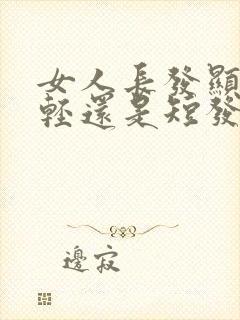 女人長發顯
輕還是短發
邊寂